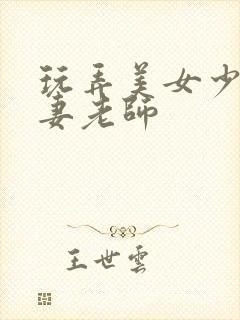 玩弄美女少
妻老師
王世雲